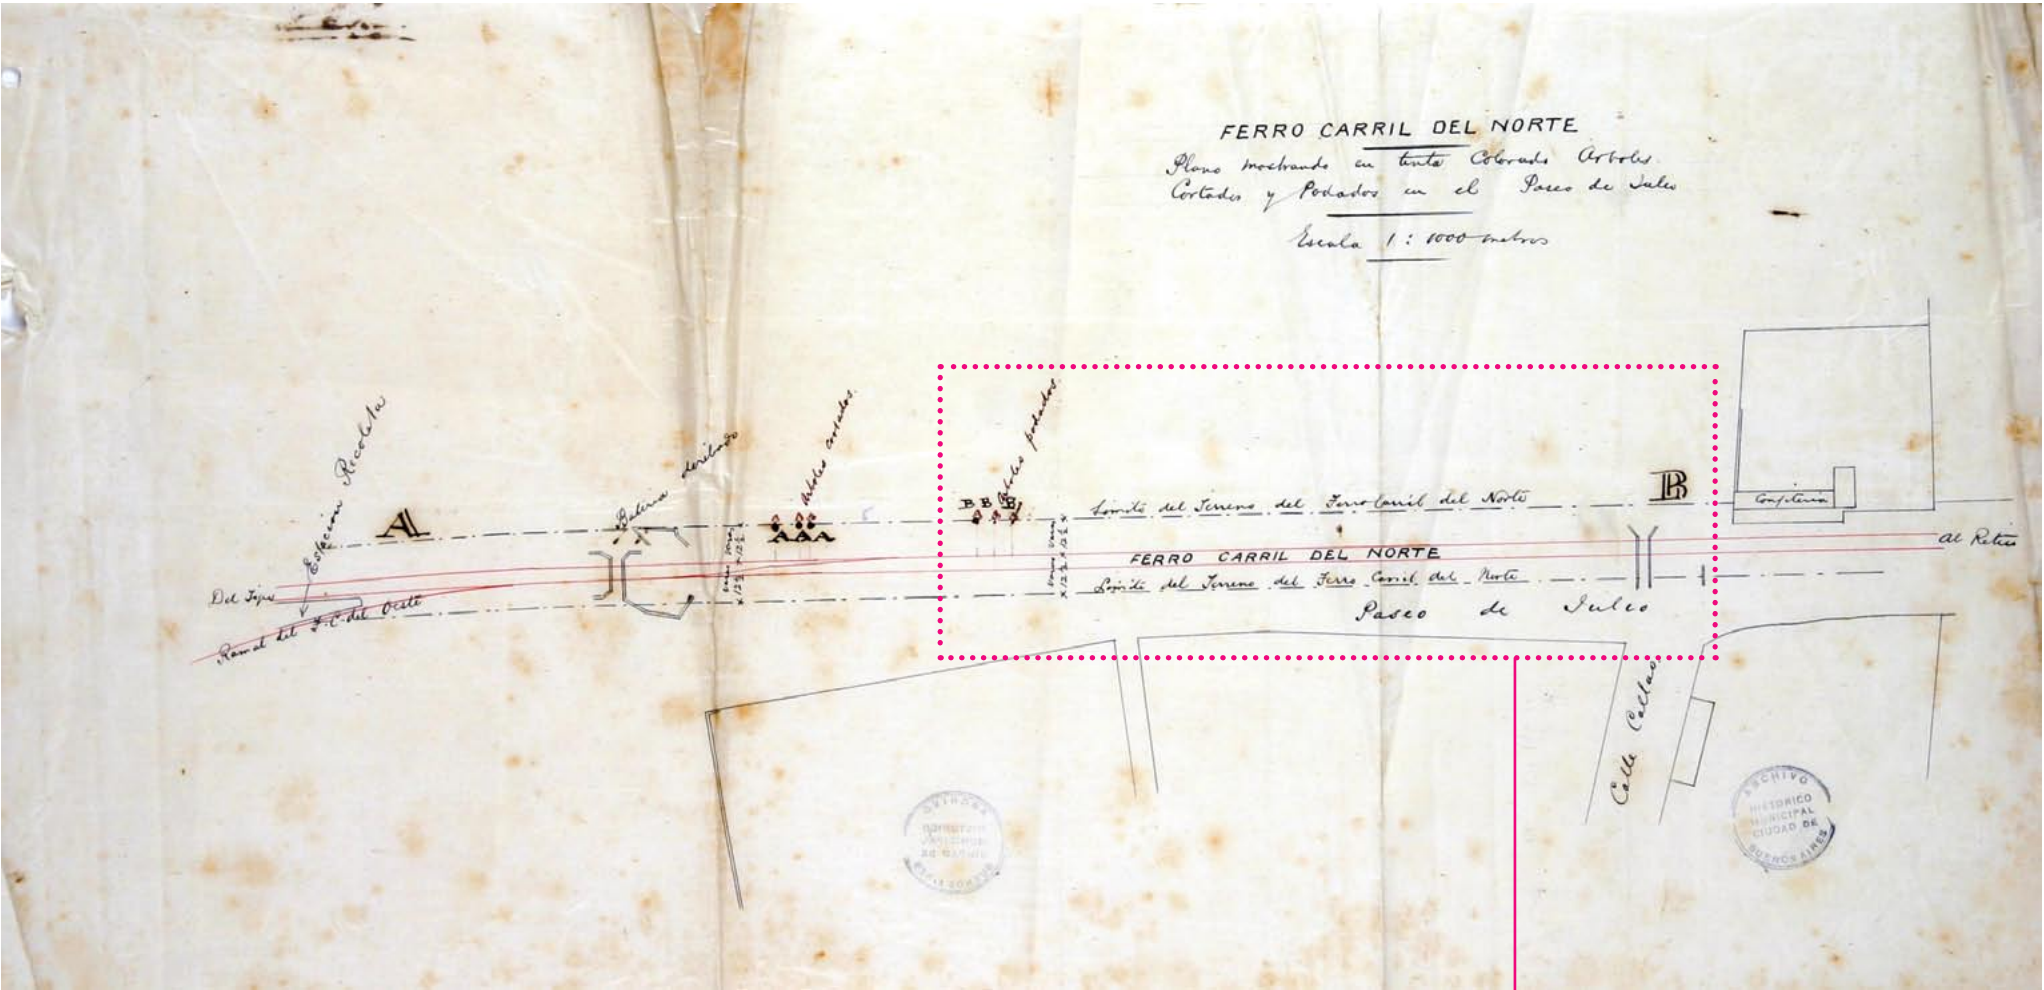 FERRO CARRIL DEL NORTE
Plano mostrando en tinta Colorado Arboles
Cortados y Podados en el Paseo de Julio
Escala 1 : 1000 metros
Estacion Recoleta
A
Bateria deribado
Arboles cortados.
A A A
Arboles podados.
B B B
Limite del Terreno del Ferro Carril del Norte
B
Confiteria
FERRO CARRIL DEL NORTE
Al Retiro
Limite del Terreno del Ferro Carril del Norte
Del Tigre
Ramal del F.C. del Oeste
Paseo de Julio
Calle Callao
ARCHIVO
HISTORICO
MUNICIPAL
CIUDAD DE
BUENOS AIRES